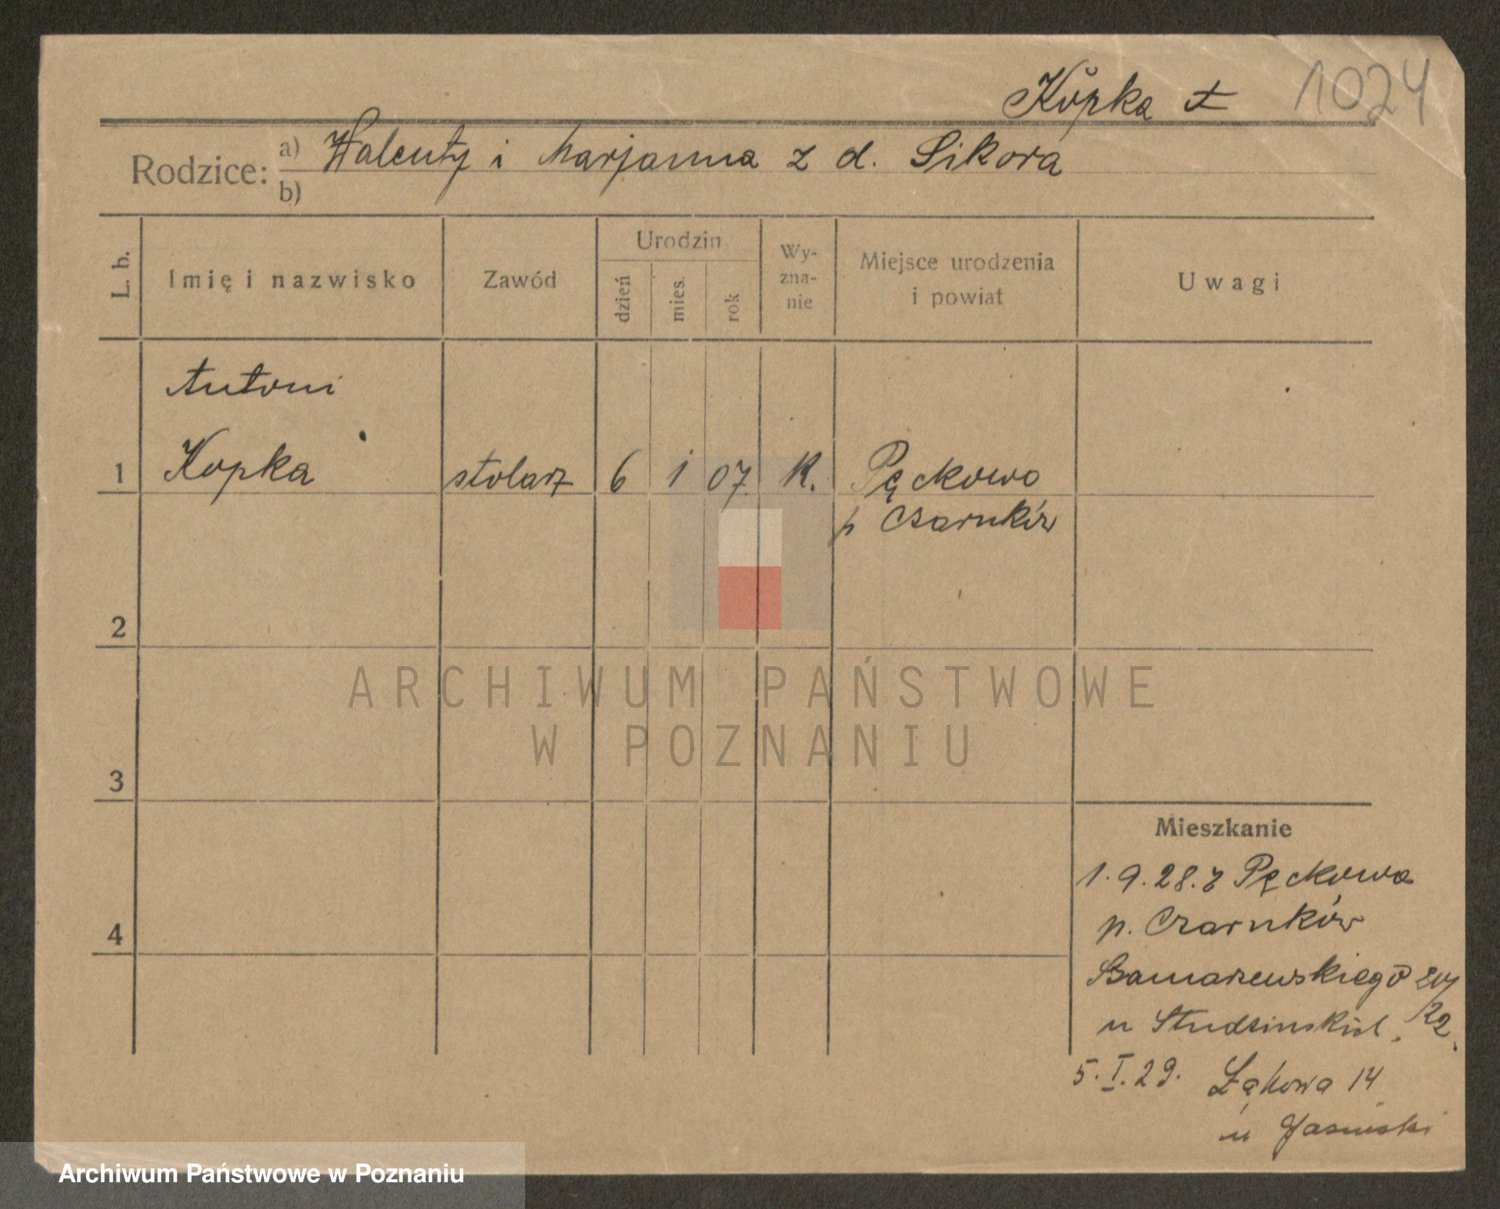 Kopka
1024
Rodzice: a) Walenty i Marjanna z d. Sikora
b)
L. b. Imię i nazwisko Zawód Urodzin dzień mies. rok Wyznanie Miejsce urodzenia i powiat Uwagi
Antoni
1 Kopka stolarz 6 1 07 K. Pęckowo
p Czarnków
2
ARCHIWUM PAŃSTWOWE
W POZNANIU
3
Mieszkanie
1.9.28. z Pęckowa
4 p. Czarnków
Szamarzewskiego
u Studzinskich
5.I.29. Łąkowa 14
u Jasinski
Archiwum Państwowe w Poznaniu